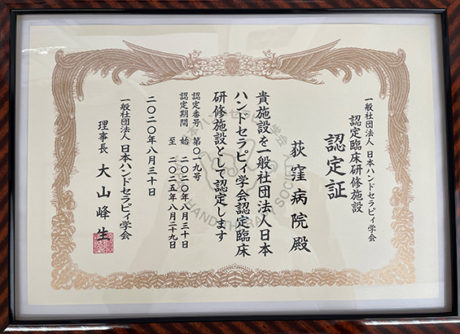 一般社団法人 日本ハンドセラピィ学会
認定臨床研修施設
認定証
荻窪病院殿
貴施設を一般社団法人日本
ハンドセラピィ学会認定臨床
研修施設として認定します
認定番号 第〇一九号
認定期間 始 二〇二〇年八月三十日
至 二〇二五年八月二十九日
二〇二〇年八月三十日
一般社団法人 日本ハンドセラピィ学会
理事長 大山峰生